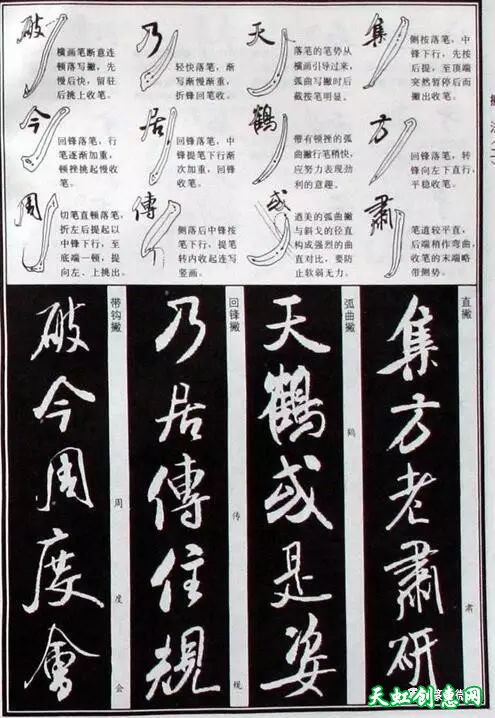 集
侧按落笔，中
锋下行，先按
后提，至顶端
突然暂停后而
撇出收笔。
方
回锋落笔，转
锋向左下直行，
平稳收笔。
肅
笔道较平直，
后端稍作弯曲，
收笔的末端略
带侧势。
天
落笔的笔势从
横画引导过来，
弧曲写撇时后
截按笔明显。
鶴
带有顿挫的弧
曲撇行笔稍快，
应努力表现劲
利的意趣。
或
遒美的弧曲撇
与斜戈的径直
构成强烈的曲
直对比，要防
止软弱无力。
乃
轻快落笔，渐
写渐慢渐重，
折锋回笔收。
居
回锋落笔，中
锋提笔下行渐
次加重，回锋
收笔。
傳
侧落后中锋按
笔下行，提笔
转内收起连写
竖画。
破
横画笔断意连
顿落写撇，先
慢后快，留驻
后挑上收笔。
今
回锋落笔，行
笔逐渐加重，
顿挫挑起慢收
笔。
周
切笔直顿落笔，
折左后提起以
中锋下行，至
底端一顿，提
向左、上挑出。
直撇
集方老肅研
肃
弧曲撇
天鶴或是姿
鹤
回锋撇
乃居傳住規
传 规
带钩撇
破今周度會
周 度 会
天虹创意网